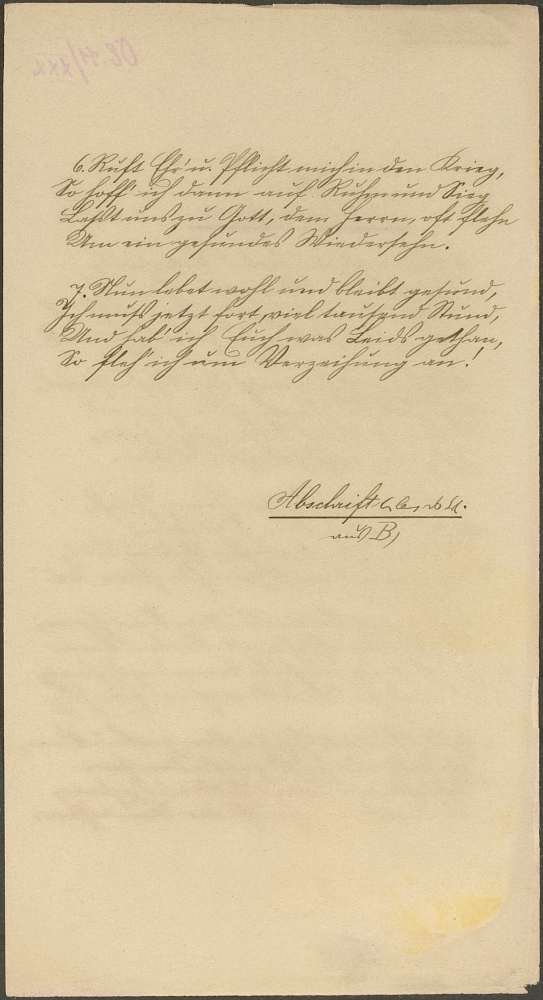 6. Ruft Ehr' u. Pflicht mich in den Krieg,
So hoff' ich dann auf Ruhm und Sieg
Laßt uns zu Gott, dem Herrn, oft flehn
Um ein gesundes Wiedersehn.
7. Nun lebet wohl und bleibt gesund,
Ich muß jetzt fort, viel tausend Stund,
Und hab' ich Euch was Leids gethan,
So fleh' ich um Verzeihung an!
Abschrift
aus B)